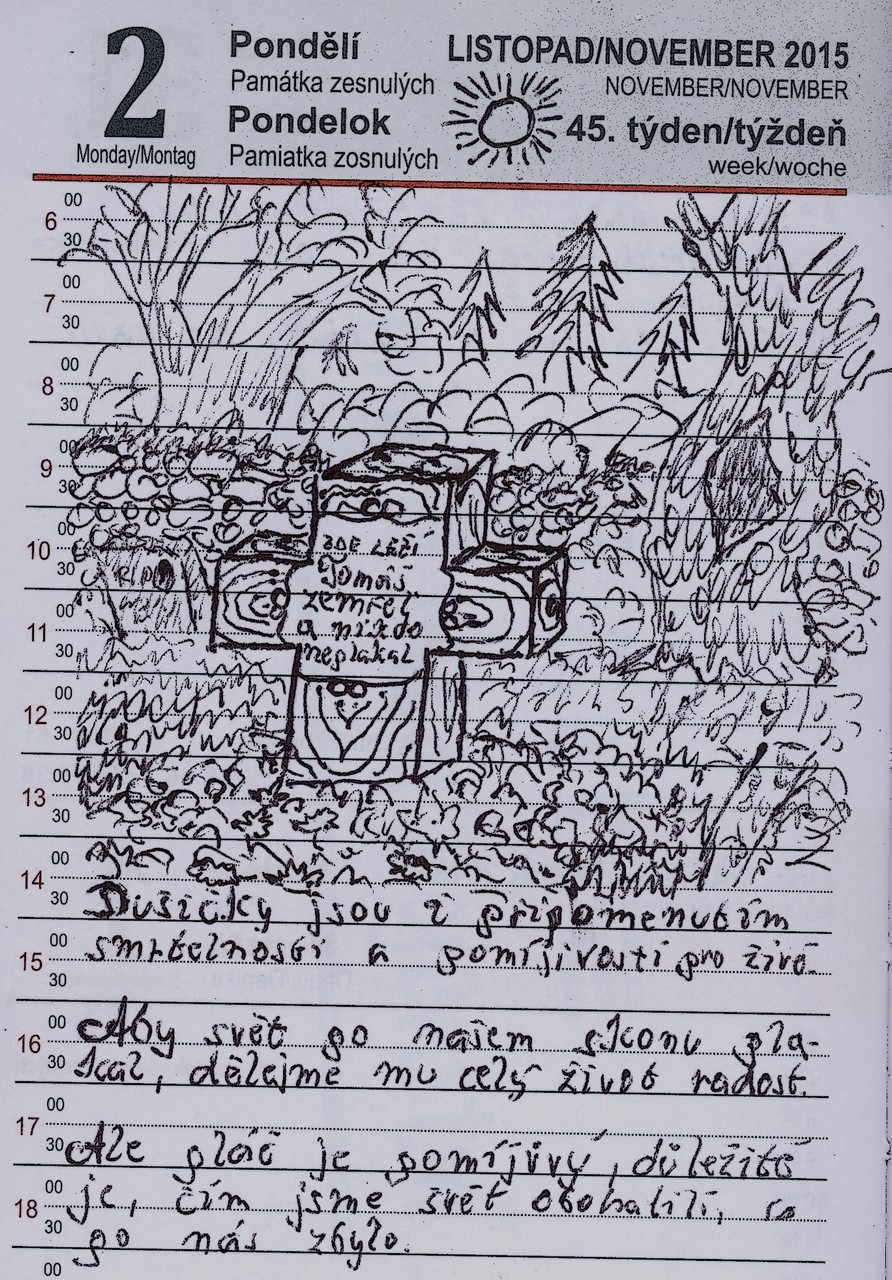 2
Monday/Montag
Pondělí
Památka zesnulých
Pondelok
Pamiatka zosnulých
LISTOPAD/NOVEMBER 2015
NOVEMBER/NOVEMBER
45. týden/týždeň
week/woche
6 00
30
7 00
30
8 00
30
9 00
30
10 00
30
11 00
30
12 00
30
13 00
30
14 00
30
15 00
30
16 00
30
17 00
30
18 00
30
00
R.I.P.
ZDE LEŽÍ
Tomáš
zemřel
a nikdo
neplakal
Dušičky jsou i připomenutím
smrtelnosti a pomíjivosti pro živé.
Aby svět po našem skonu pla-
kal, dělejme mu celý život radost.
Ale pláč je pomíjivý, důležité
je, čím jsme svět obohatili, co
po nás zbylo.